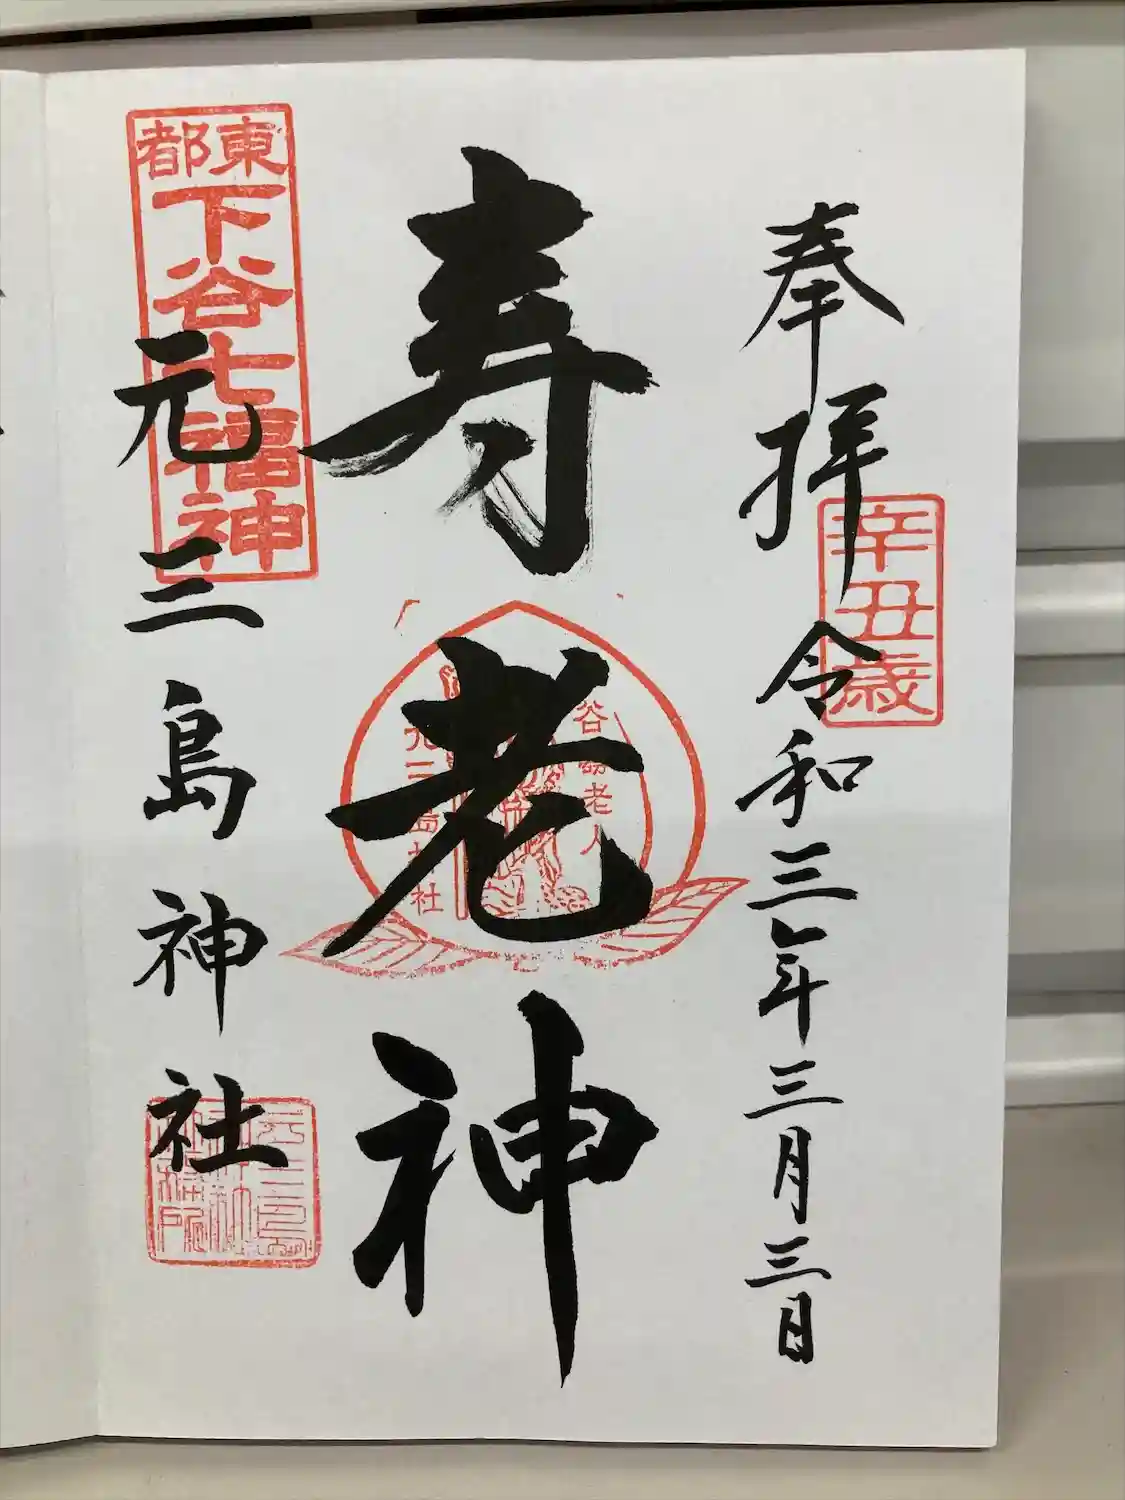 奉拝 令和三年三月三日
辛丑歳
寿老神
谷寿老人
元三島神社
東都
下谷七福神
元三島神社